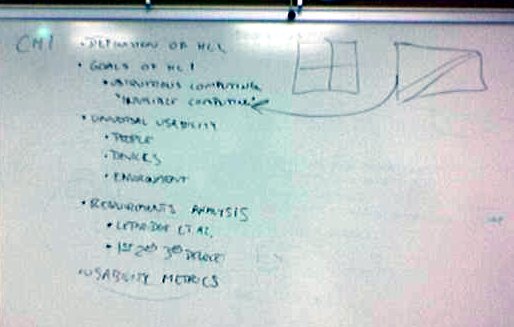 CH1
• DEFINITION OF HCI
• GOALS OF HCI
• UBIQUITOUS COMPUTING
"INVISIBLE COMPUTING"
• UNIVERSAL USABILITY
• PEOPLE
• DEVICES
• ENVIRONMENT
• REQUIREMENTS ANALYSIS
• ET AL.
• 1ST 2ND 3RD DEGREE
• USABILITY METRICS